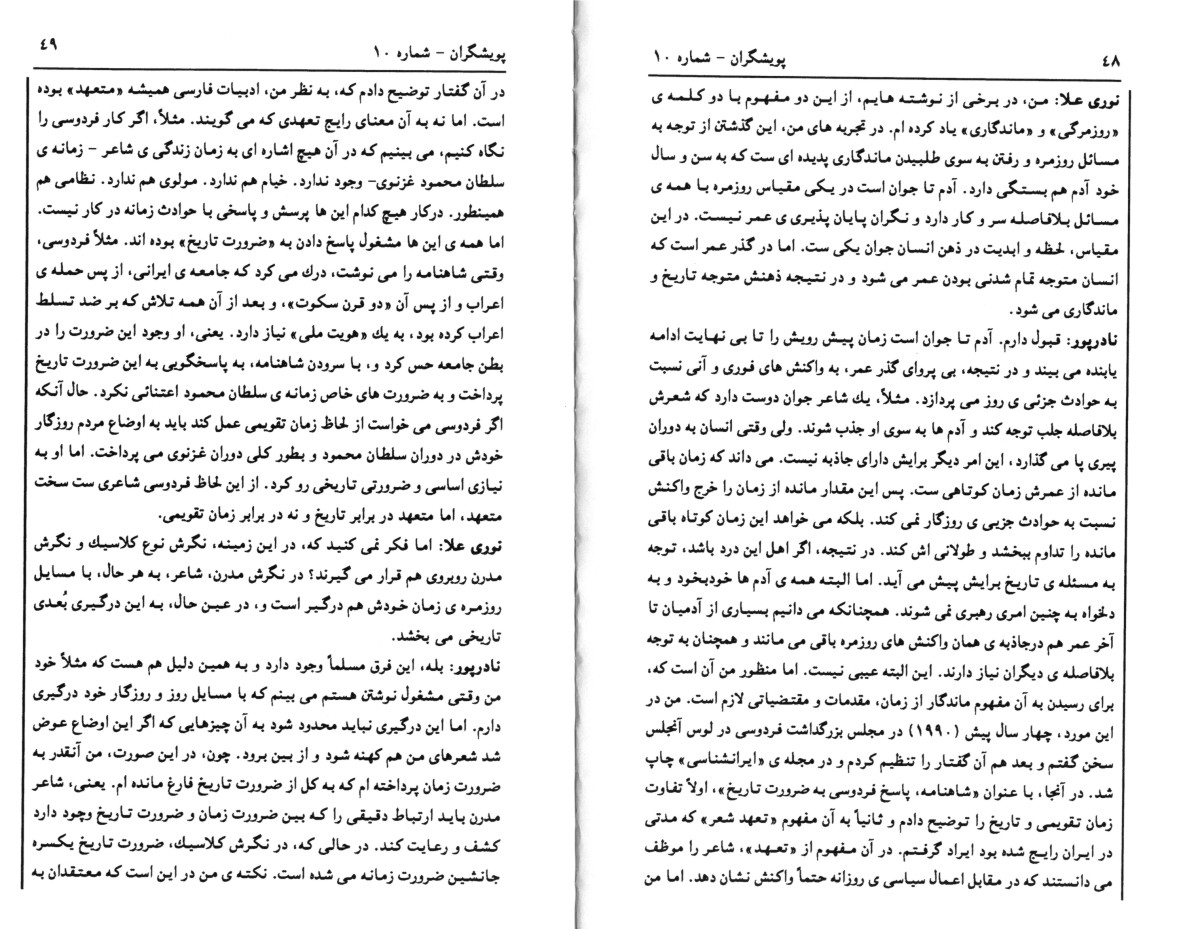 ٤٨
پویشگران – شماره ١٠
نوری علا: من، در برخی از نوشته هایم، از این دو مفهوم با دو کلمه ی
«روزمرگی» و «ماندگاری» یاد کرده ام. در تجربه های من، این گذشتن از توجه به
مسائل روزمره و رفتن به سوی طلبیدن ماندگاری پدیده ای ست که به سن و سال
خود آدم هم بستگی دارد. آدم تا جوان است در یکی مقیاس روزمره با همه ی
مسائل بلافاصله سر و کار دارد و نگران پایان پذیری ی عمر نیست. در این
مقیاس، لحظه و ابدیت در ذهن انسان جوان یکی ست. اما در گذر عمر است که
انسان متوجه تمام شدنی بودن عمر می شود و در نتیجه ذهنش متوجه تاریخ و
ماندگاری می شود.
نادرپور: قبول دارم. آدم تا جوان است زمان پیش رویش را تا بی نهایت ادامه
یابنده می بیند و در نتیجه، بی پروای گذر عمر، به واکنش های فوری و آنی نسبت
به حوادث جزئی ی روز می پردازد. مثلاً، یك شاعر جوان دوست دارد که شعرش
بلافاصله جلب توجه کند و آدم ها به سوی او جذب شوند. ولی وقتی انسان به دوران
پیری پا می گذارد، این امر دیگر برایش دارای جاذبه نیست. می داند که زمان باقی
مانده از عمرش زمان کوتاهی ست. پس این مقدار مانده از زمان را خرج واکنش
نسبت به حوادث جزیی ی روزگار نمی کند. بلکه می خواهد این زمان کوتاه باقی
مانده را تداوم ببخشد و طولانی اش کند. در نتیجه، اگر اهل این درد باشد، توجه
به مسئله ی تاریخ برایش پیش می آید. اما البته همه ی آدم ها خودبخود و به
دلخواه به چنین امری رهبری نمی شوند. همچنانکه می دانیم بسیاری از آدمیان تا
آخر عمر هم درجاذبه ی همان واکنش های روزمره باقی می مانند و همچنان به توجه
بلافاصله ی دیگران نیاز دارند. این البته عیبی نیست. اما منظور من آن است که،
برای رسیدن به آن مفهوم ماندگار از زمان، مقدمات و مقتضیاتی لازم است. من در
این مورد، چهار سال پیش (١٩٩٠) در مجلس بزرگداشت فردوسی در لوس آنجلس
سخن گفتم و بعد هم آن گفتار را تنظیم کردم و در مجله ی «ایرانشناسی» چاپ
شد. در آنجا، با عنوان «شاهنامه، پاسخ فردوسی به ضرورت تاریخ»، اولاً تفاوت
زمان تقویمی و تاریخ را توضیح دادم و ثانیاً به آن مفهوم «تعهد شعر» که مدتی
در ایران رایج شده بود ایراد گرفتم. در آن مفهوم از «تعهد»، شاعر را موظف
می دانستند که در مقابل اعمال سیاسی ی روزانه حتماً واکنش نشان دهد. اما من
پویشگران – شماره ١٠
٤٩
در آن گفتار توضیح دادم که، به نظر من، ادبیات فارسی همیشه «متعهد» بوده
است. اما نه به آن معنای رایج تعهدی که می گویند. مثلاً، اگر کار فردوسی را
نگاه کنیم، می بینیم که در آن هیچ اشاره ای به زمان زندگی ی شاعر – زمانه ی
سلطان محمود غزنوی– وجود ندارد. خیام هم ندارد. مولوی هم ندارد. نظامی هم
همینطور. درکار هیچ کدام این ها پرسش و پاسخی با حوادث زمانه در کار نیست.
اما همه ی این ها مشغول پاسخ دادن به «ضرورت تاریخ» بوده اند. مثلاً فردوسی،
وقتی شاهنامه را می نوشت، درك می کرد که جامعه ی ایرانی، از پس حمله ی
اعراب و از پس آن «دو قرن سکوت»، و بعد از آن همه تلاش که بر ضد تسلط
اعراب کرده بود، به یك «هویت ملی» نیاز دارد. یعنی، او وجود این ضرورت را در
بطن جامعه حس کرد و، با سرودن شاهنامه، به پاسخگویی به این ضرورت تاریخ
پرداخت و به ضرورت های خاص زمانه ی سلطان محمود اعتنائی نکرد. حال آنکه
اگر فردوسی می خواست از لحاظ زمان تقویمی عمل کند باید به اوضاع مردم روزگار
خودش در دوران سلطان محمود و بطور کلی دوران غزنوی می پرداخت. اما او به
نیازی اساسی و ضرورتی تاریخی رو کرد. از این لحاظ فردوسی شاعری ست سخت
متعهد، اما متعهد در برابر تاریخ و نه در برابر زمان تقویمی.
نوری علا: اما فکر نمی کنید که، در این زمینه، نگرش نوع کلاسیك و نگرش
مدرن روبروی هم قرار می گیرند؟ در نگرش مدرن، شاعر، به هر حال، با مسایل
روزمره ی زمان خودش هم درگیر است و، در عین حال، به این درگیری بُعدی
تاریخی می بخشد.
نادرپور: بله، این فرق مسلماً وجود دارد و به همین دلیل هم هست که مثلاً خود
من وقتی مشغول نوشتن هستم می بینم که با مسایل روز و روزگار خود درگیری
دارم. اما این درگیری نباید محدود شود به آن چیزهایی که اگر این اوضاع عوض
شد شعرهای من هم کهنه شود و از بین برود. چون، در این صورت، من آنقدر به
ضرورت زمان پرداخته ام که به کل از ضرورت تاریخ فارغ مانده ام. یعنی، شاعر
مدرن باید ارتباط دقیقی را که بین ضرورت زمان و ضرورت تاریخ وجود دارد
کشف و رعایت کند. در حالی که، در نگرش کلاسیك، ضرورت تاریخ یکسره
جانشین ضرورت زمانه می شده است. نکته ی من در این است که معتقدان به